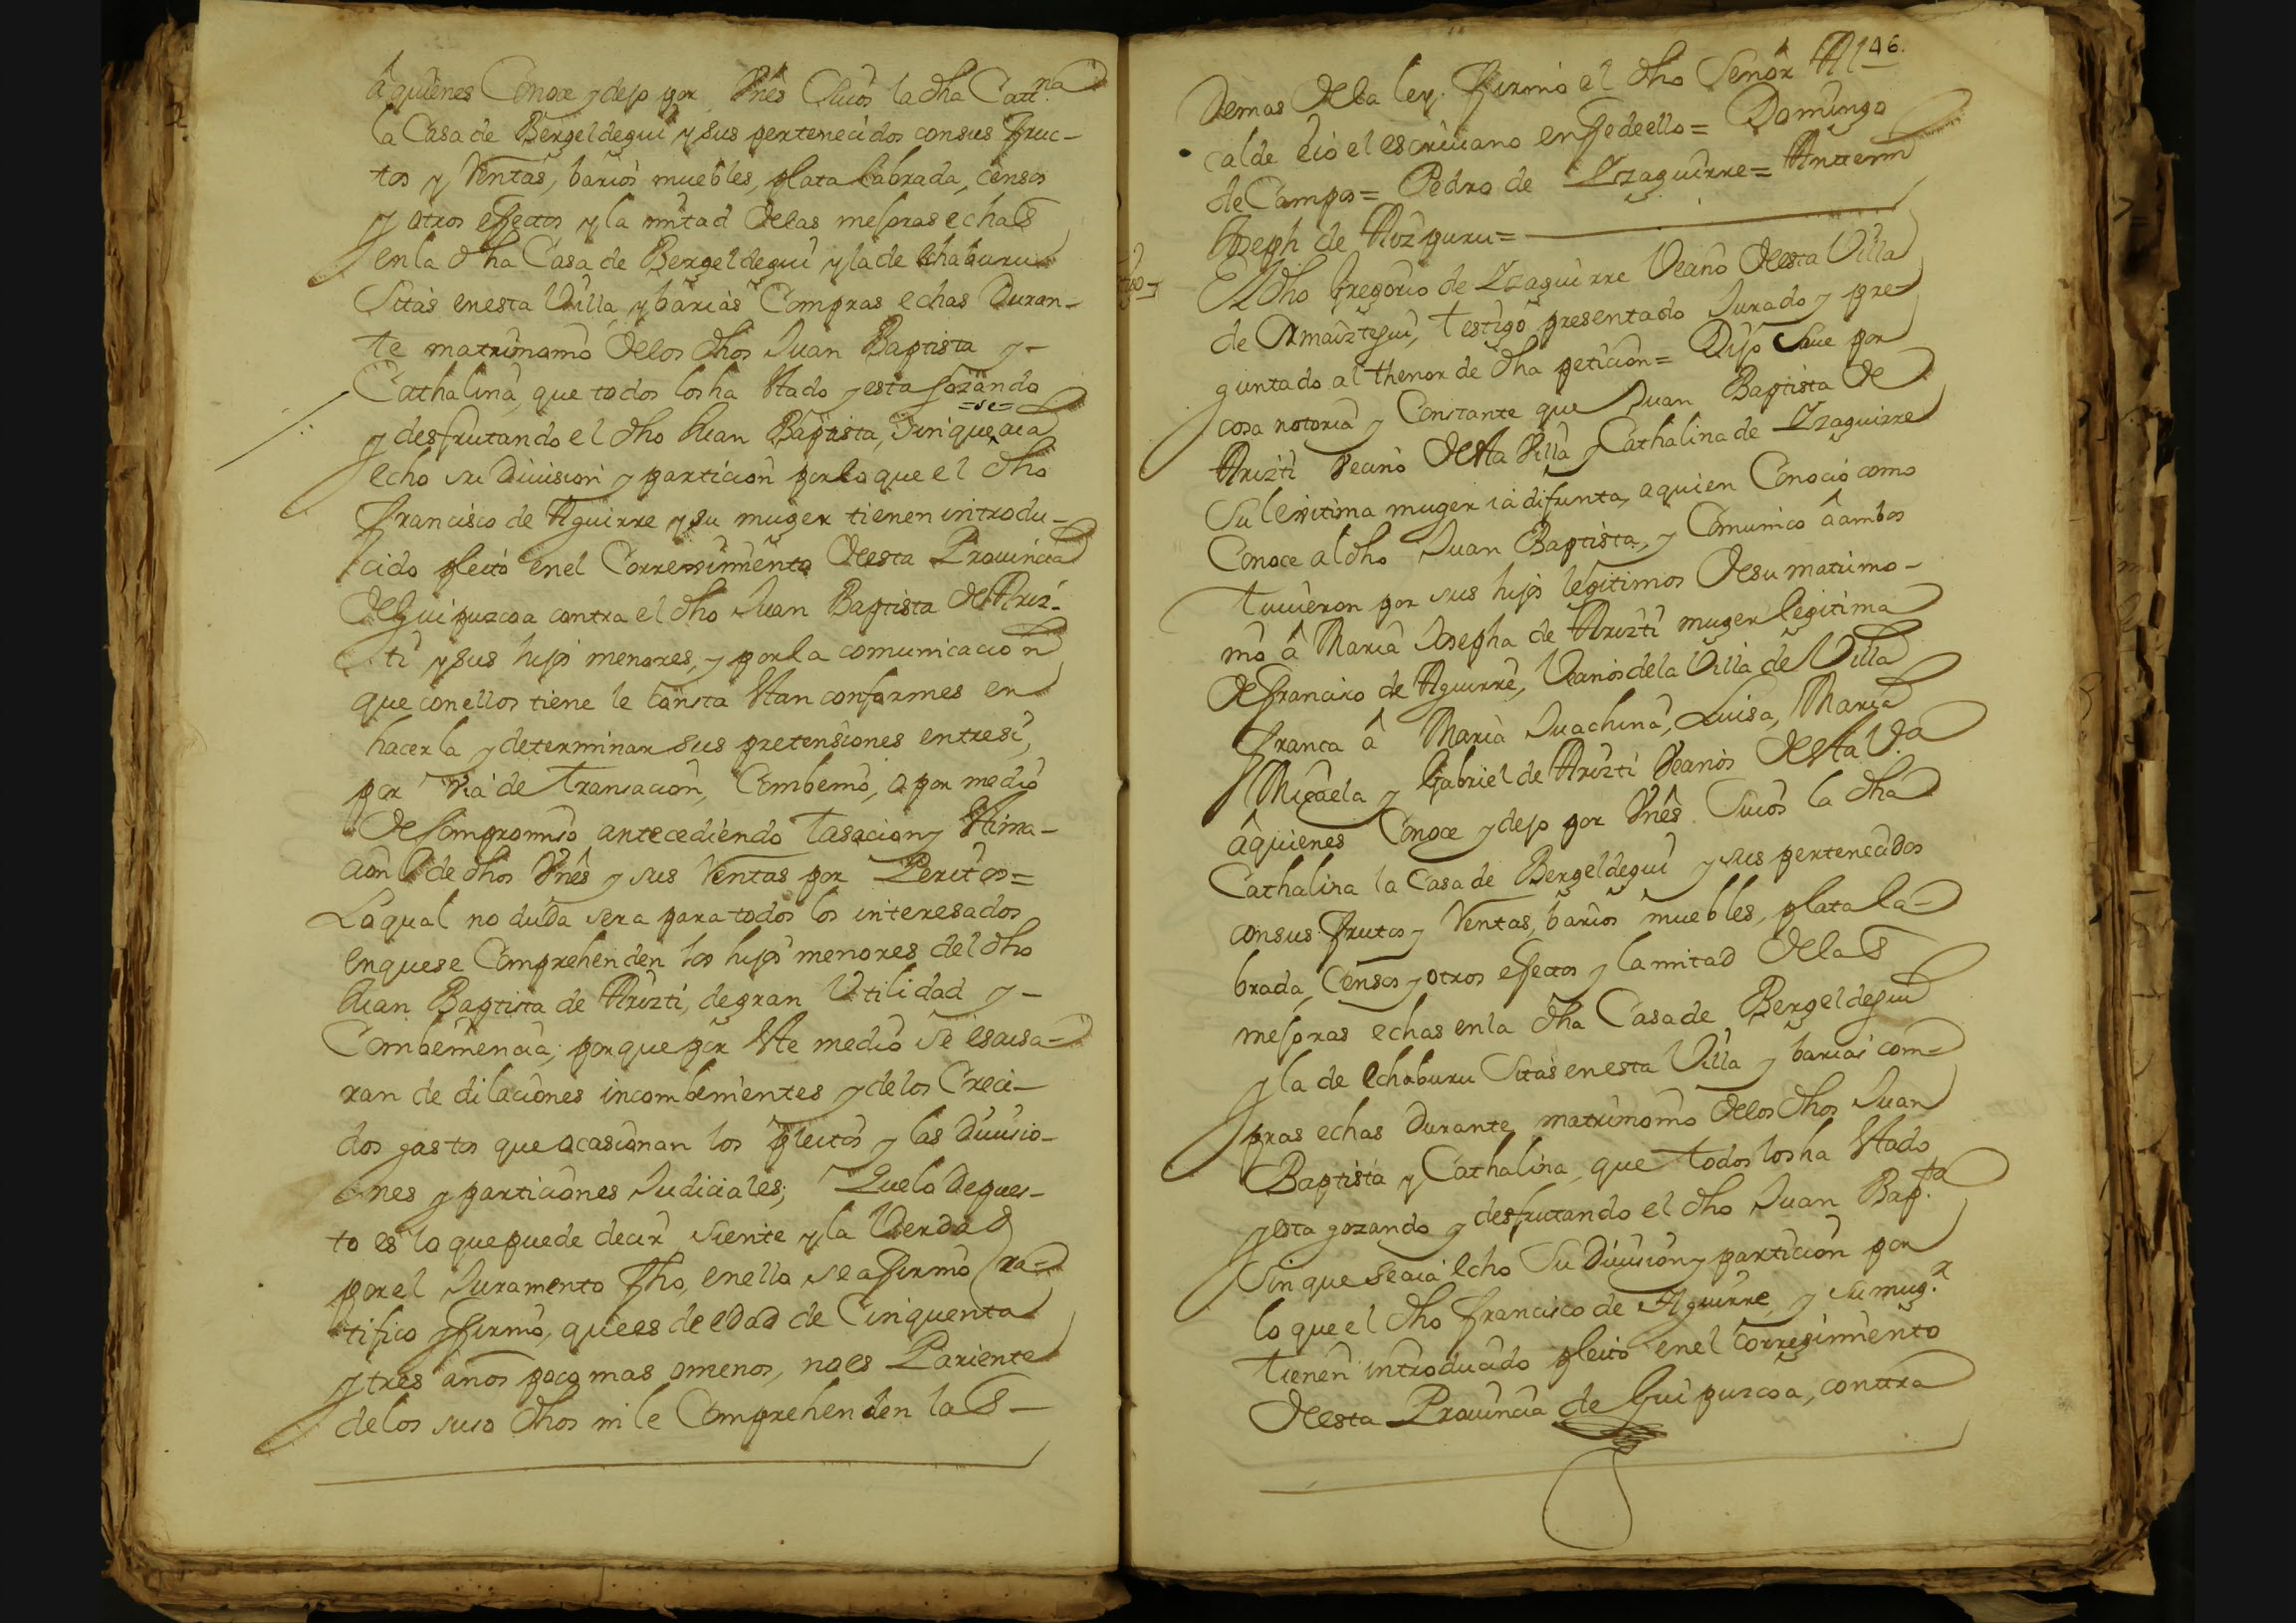 â quienes Conoce y dejo por Vnês Suios la dha Catt.na
la Casa de Bergeldegui y sus pertenecidos con sus Fruc-
tos y Rentas, barios muebles, plata labrada, censos
y otros effectos y la mitad de las mejoras echas
en la dha Casa de Bergeldegui y la de Echaburu
Sitas en esta Villa, y barias Compras echas Duran-
te matrimonio de los dhos Juan Baptista y -
Cathalina, que todos los ha Vtado y esta gozando
=se=
y desfrutando el dho Juan Baptista, Sin que aia
echo su Diuision y particion por lo que el dho
Francisco de Aguirre y su muger tienen introdu-
cido pleito en el Correximiento desta Prouincia
de Guipuzcoa contra el dho Juan Baptista de Ariz-
ti y sus hijos menores, y por la comunicacion
que con ellos tiene le Consta Vtan conformes en
hacerla y determinar sus pretensiones entre si,
por via de Transacion, Combenio, o por medio
de Compromiso antecediendo Tasacion y Vtima-
cion de dhos Vnês y sus Rentas por Peritos=
La qual no duda sera para todos los interesados
en que se Comprehenden los hijos menores del dho
Juan Baptista de Arizti, de gran Vtilidad y -
Combeniencia; por que por Vte medio se escusa-
ran de dilaciones incombenientes y de los Creci-
dos gastos que ocasionan los pleitos y las Diuisio-
nes y particiones Judiciales; Que lo de pues-
to es lo que puede decir siente y la Verdad
por el Juramento fho, en ello se afirmo ra-
tifico y firmo, que es de edad de Cinquenta
y tres años poco mas o menos, no es Pariente
de los suso dhos ni le Comprehenden las -
146.
Demas de la ley. Firmo el dho Señor Al
calde e io el escriuano en fe de ello= Domingo
de Campos= Pedro de Yzaguirre= Antemi
Joseph de Aizpuru=
El dho Gregorio de Yzaguirre Vecino desta Villa
de Amaiztegui, Testigo presentado Jurado y pre-
guntado al thenor de dha peticion= Dijo Saue por
cosa notoria y Constante que Juan Baptista de
Arizti Vecino desta Villa y Cathalina de Yzaguirre
Su lexitima muger ia difunta, a quien Conocio como
Conoce al dho Juan Baptista, y Comunico â ambos
Tuuieron por sus hijos legitimos de su matrimo-
nio â Maria Josepha de Arizti muger legitima
de Francisco de Aguirre, Vecinos de la Villa de Villa
franca â Maria Juachina, Luisa, Maria
Micaela y Gabriel de Arizti Vecinos desta V.a
âquienes Conoce y dejo por Vnês Suios la dha
Cathalina la Casa de Bergeldegui y sus pertenecidos
con sus frutos y Rentas, barios muebles, plata la-
brada, Censos y otros effectos y la mitad de las
mejoras echas en la dha Casa de Bergeldegui
y la de Echaburu Sitas en esta Villa y barias com-
pras echas Durante matrimonio de los dhos Juan
Baptista y Cathalina, que todos los ha Vtado
y esta gozando y desfrutando el dho Juan Bap.ta
Sin que se aia echo Su Diuision y particion por
lo que el dho Francisco de Aguirre, y su mug.r
Tienen introducido pleito en el Corregimiento
desta Prouincia de Guipuzcoa, contra